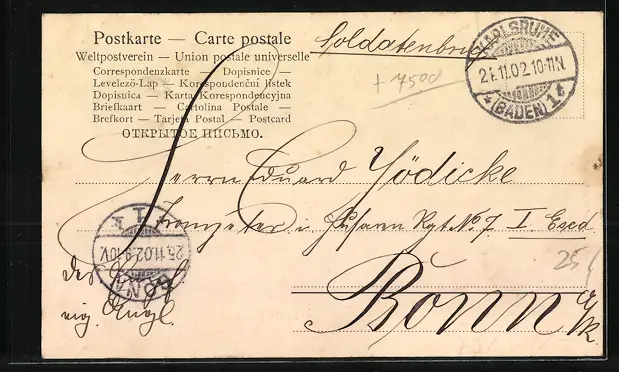 Postkarte — Carte postale
Weltpostverein — Union postale universelle
Correspondenzkarte — Dopisnice —
Levelező-Lap — Korespondenční listek
Dopisnica — Karta Korespondencyjna
Briefkaart — Cartolina Postale —
Brefkort — Tarjeta Postal — Postcard
ОТКРЫТОЕ ПИСЬМО.
Soldatenbrief
+ 7500
KARLSRUHE
11.02.10-11N.
* (BADEN) 1 *
Herrn Eduard Jödicke
Trompeter i. Husarn Rgt. No. 7 I Escd
25
Bonn a/R.
BONN
25.11.02.9-10V.